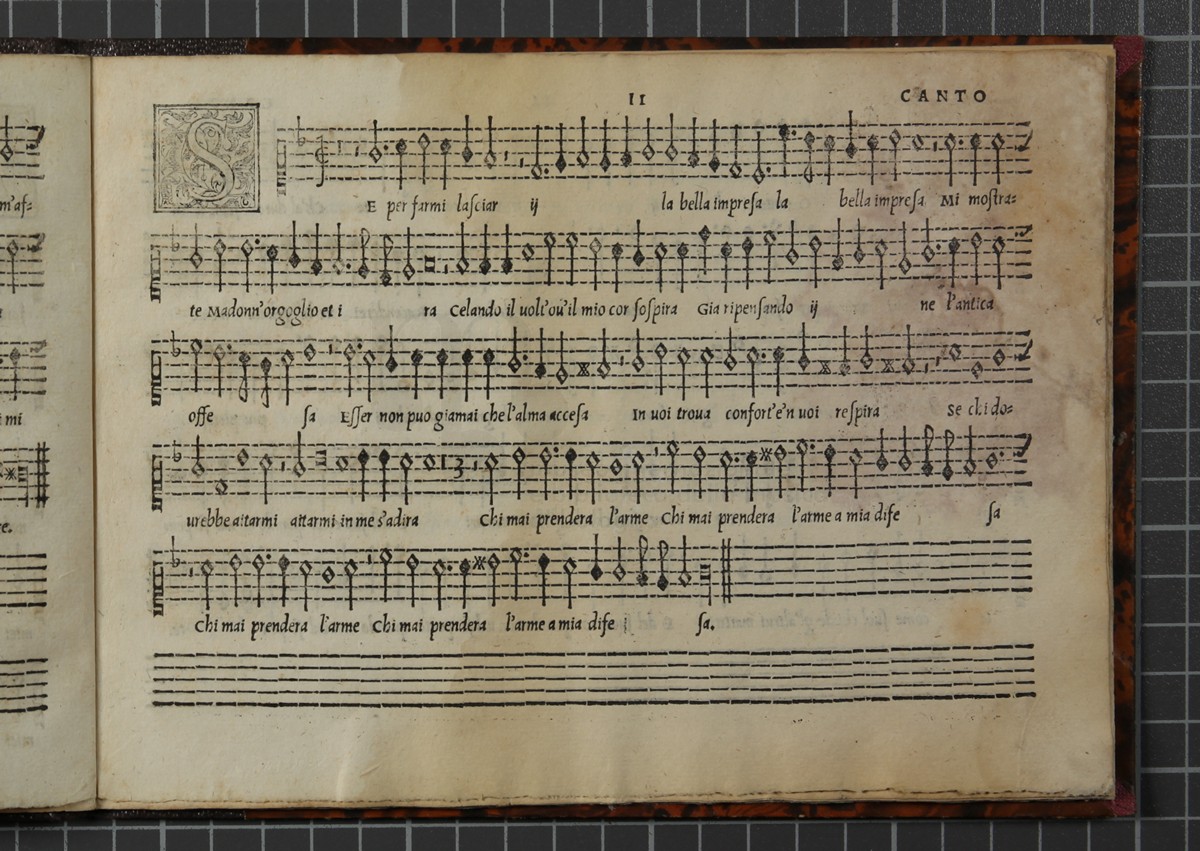 II CANTO
SE per farmi laſciar ij la bella impreſa la bella impreſa Mi moſtra=
te Madonn'orgoglio et i ra Celando il uolt'ou'il mio cor ſoſpira Gia ripenſando ij ne l'antica
offe ſa Eſſer non puo giamai che l'alma acceſa In uoi troua confort'e'n uoi reſpira Se chi do=
urebbe aitarmi aitarmi in me s'adira Chi mai prendera l'arme Chi mai prendera l'arme a mia dife ſa
Chi mai prendera l'arme Chi mai prendera l'arme a mia dife ſa.
m'aſ=
i mi
re.